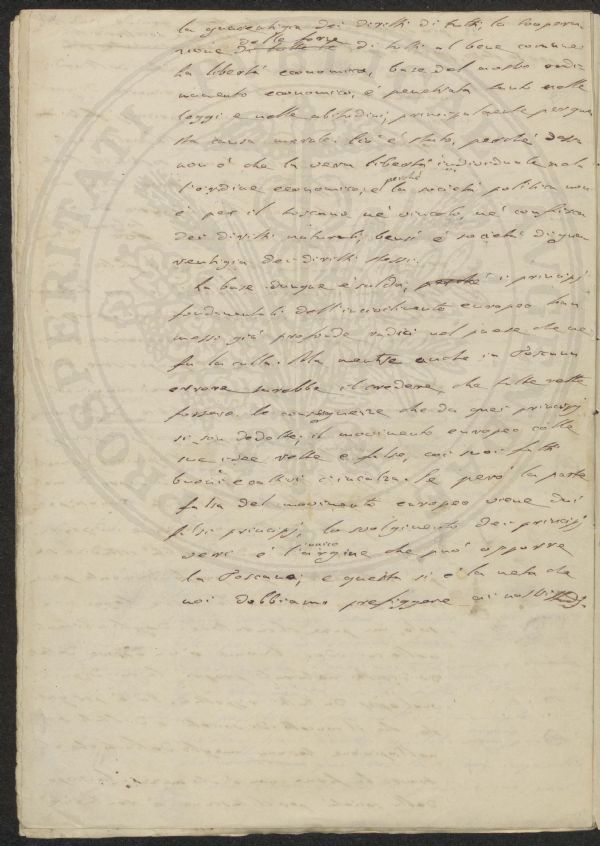 la guarentigia dei diritti di tutti, la coopera
zione delle forze di tutti al bene comune
la libertà economica, base del nostro ordi
namento economico, è penetrata tanto nelle
leggi e nelle abitudini, principalmente perché
sta causa morale. Ciò è stato, perché essa
non è che la vera libertà individuale nel
l'ordine economico, e perché la società politica non
è per il toscano nè vincolo, nè confisca
dei diritti naturali, bensì è società di gua
rentigia dei diritti stessi.
La base dunque è salda; perché i principj
fondamentali dell'incivilimento europeo han
messi già profonde radici nel paese che ne
fu la culla. Ma anche in Toscana
errore sarebbe il credere, che tutte rette
fossero le conseguenze che da quei principj
si son dedotte; il movimento europeo colle
sue idee rette e false, coi suoi fatti
buoni e cattivi c'incalza. Se però la parte
falsa del movimento europeo viene dai
falsi principj, lo svolgimento dei principj
veri è l'unico argine che può opporre
la Toscana; e questa si è la meta che
noi dobbiamo prefiggere ai nostri